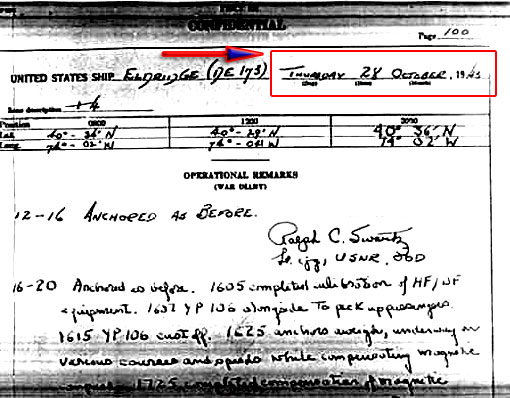 CONFIDENTIAL
Page 100
UNITED STATES SHIP ELDRIDGE (DE 173) THURSDAY 28 OCTOBER, 1943
(Day) (Date) (Month)
Zone description +4
Position 0800 1200 2000
Lat. 40° - 36' N 40° - 29' N 40° 36' N
Long. 74° - 02' W 74° - 04' W 74° 02' W
OPERATIONAL REMARKS
(WAR DIARY)
12-16 ANCHORED AS BEFORE.
Ralph C. Swartz
Lt. (jg), USNR, OOD
16-20 Anchored as before. 1605 completed calibration of HF/DF
equipment. 1607 YP 106 alongside to pick up passengers.
1615 YP 106 cast off. 1625 anchors aweigh, underway on
various courses and speeds while compensating magnetic
compass. 1725 completed compensation of magnetic